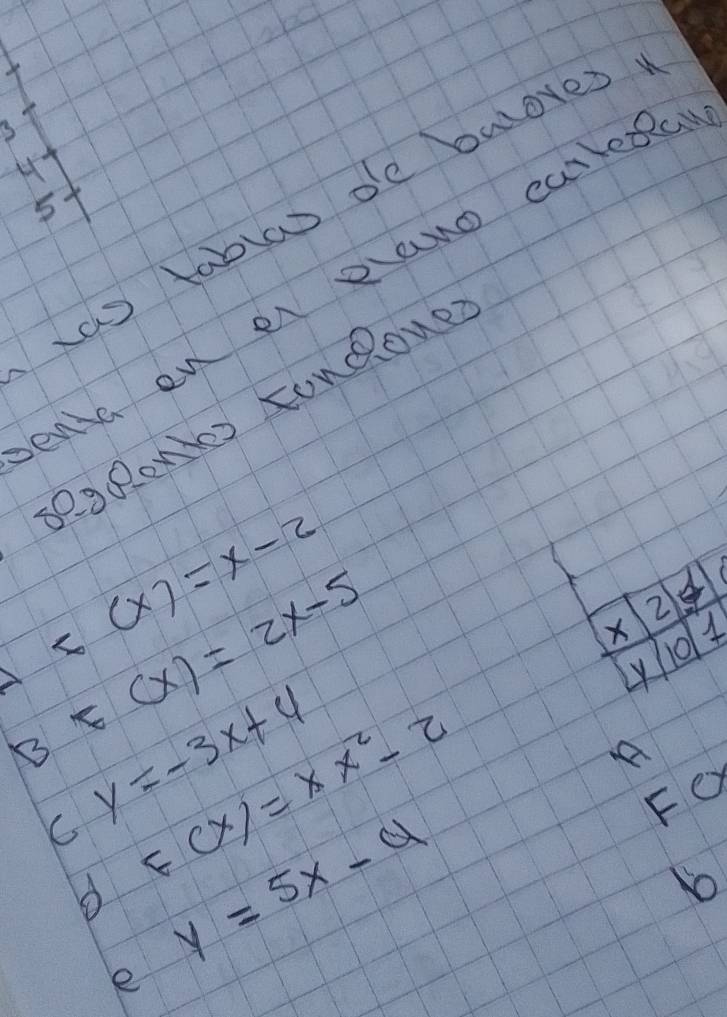 3
4
5
las tablas de balores y
senta en el plano cartesiano
siguientes funciones
A F (x) = x - 2
B F (x) = 2x - 5
C y = -3x + 4
d F (x) = x x² - 2
e y = 5x - 4
x 2
y 10 1
A
F (x
b